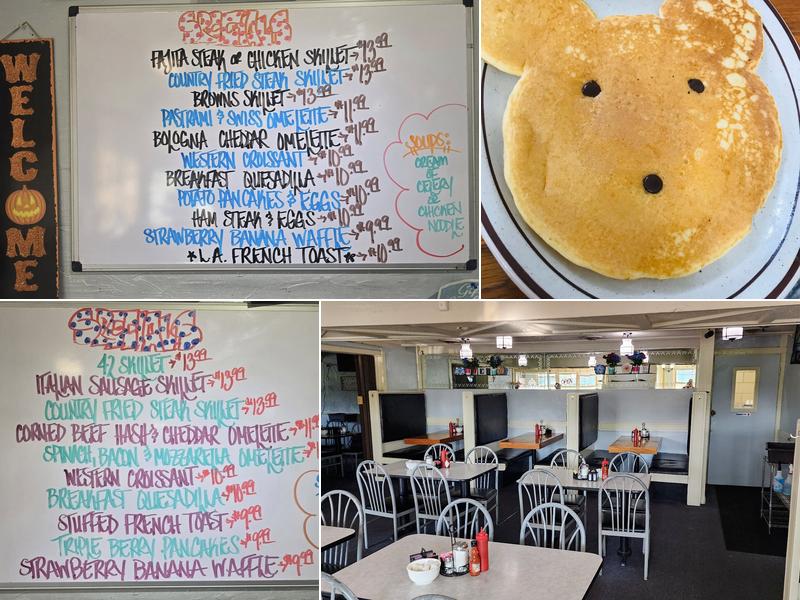 WELCOME
SPECIALS
FAJITA STEAK or CHICKEN SKILLET→$13.99
COUNTRY FRIED STEAK SKILLET→$13.99
BROWNS SKILLET→$13.99
PASTRAMI & SWISS OMELETTE→$11.99
BOLOGNA CHEDDAR OMELETTE→$11.99
WESTERN CROISSANT→$10.99
BREAKFAST QUESADILLA→$10.99
POTATO PANCAKES & EGGS→$10.99
HAM STEAK & EGGS→$10.99
STRAWBERRY BANANA WAFFLE→$9.99
*L.A. FRENCH TOAST*→$10.99
SOUPS:
CREAM
OF
CELERY
&
CHICKEN
NOODLE
SPECIALS
42 SKILLET→$13.99
ITALIAN SAUSAGE SKILLET→$13.99
COUNTRY FRIED STEAK SKILLET→$13.99
CORNED BEEF HASH & CHEDDAR OMELETTE→
SPINACH, BACON & MOZZARELLA OMELETTE→
WESTERN CROISSANT→$10.99
BREAKFAST QUESADILLA→$10.99
STUFFED FRENCH TOAST→$9.99
TRIPLE BERRY PANCAKES→$9.99
STRAWBERRY BANANA WAFFLE→$9.99
OPEN